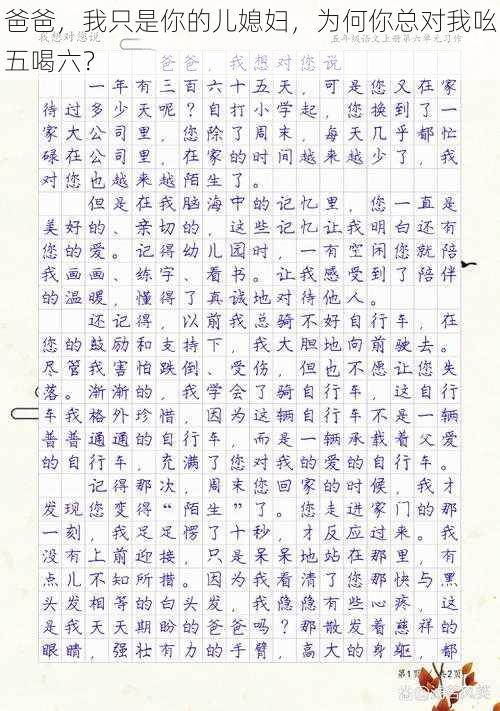 爸爸，我只是你的儿媳妇，为何你总对我吆
五喝六？
我想对您说
五年级语文上册第六单元习作
爸爸，我想对您说
一年有三百六十五天，可是您又在家
待过多少天呢？自打小学起，您换到了一
家大公司里，您除了周末，每天几乎都忙
碌在公司里，在家的时间越来越少了，我
对您也越来越陌生了。
但是在我脑海中的记忆里，您一直是
美好的、亲切的，这些记忆让我明白还有
您的爱。记得幼儿园时，一有空闲您就陪
我画画、练字、看书。让我感受到了陪伴
的温暖，懂得了真诚地对待他人。
还记得，以前我总骑不好自行车，在
您的鼓励和支持下，我大胆地向前驶去。
尽管我害怕跌倒、受伤，但也不愿让您失
落。渐渐的，我学会了骑自行车，这自行
车我格外珍惜，因为这辆自行车不是一辆
普普通通的自行车，而是一辆承载着父爱
的自行车，充满了您对我的爱的自行车。
记得那次，周末您回家的时候，我才
发现您变得“陌生”了。您走进家门的那
一刻，我足足愣了十秒，才反应过来。我
没有上前迎接，只是呆呆地站在那里，有
点儿不知所措。因为我看清了您那快与黑
头发相等的白头发，我隐隐有些心疼，这
是我天天期盼的爸爸吗？那散发着慈祥的
眼睛，强壮有力的手臂，高大的身躯，都
第1页 / 共2页